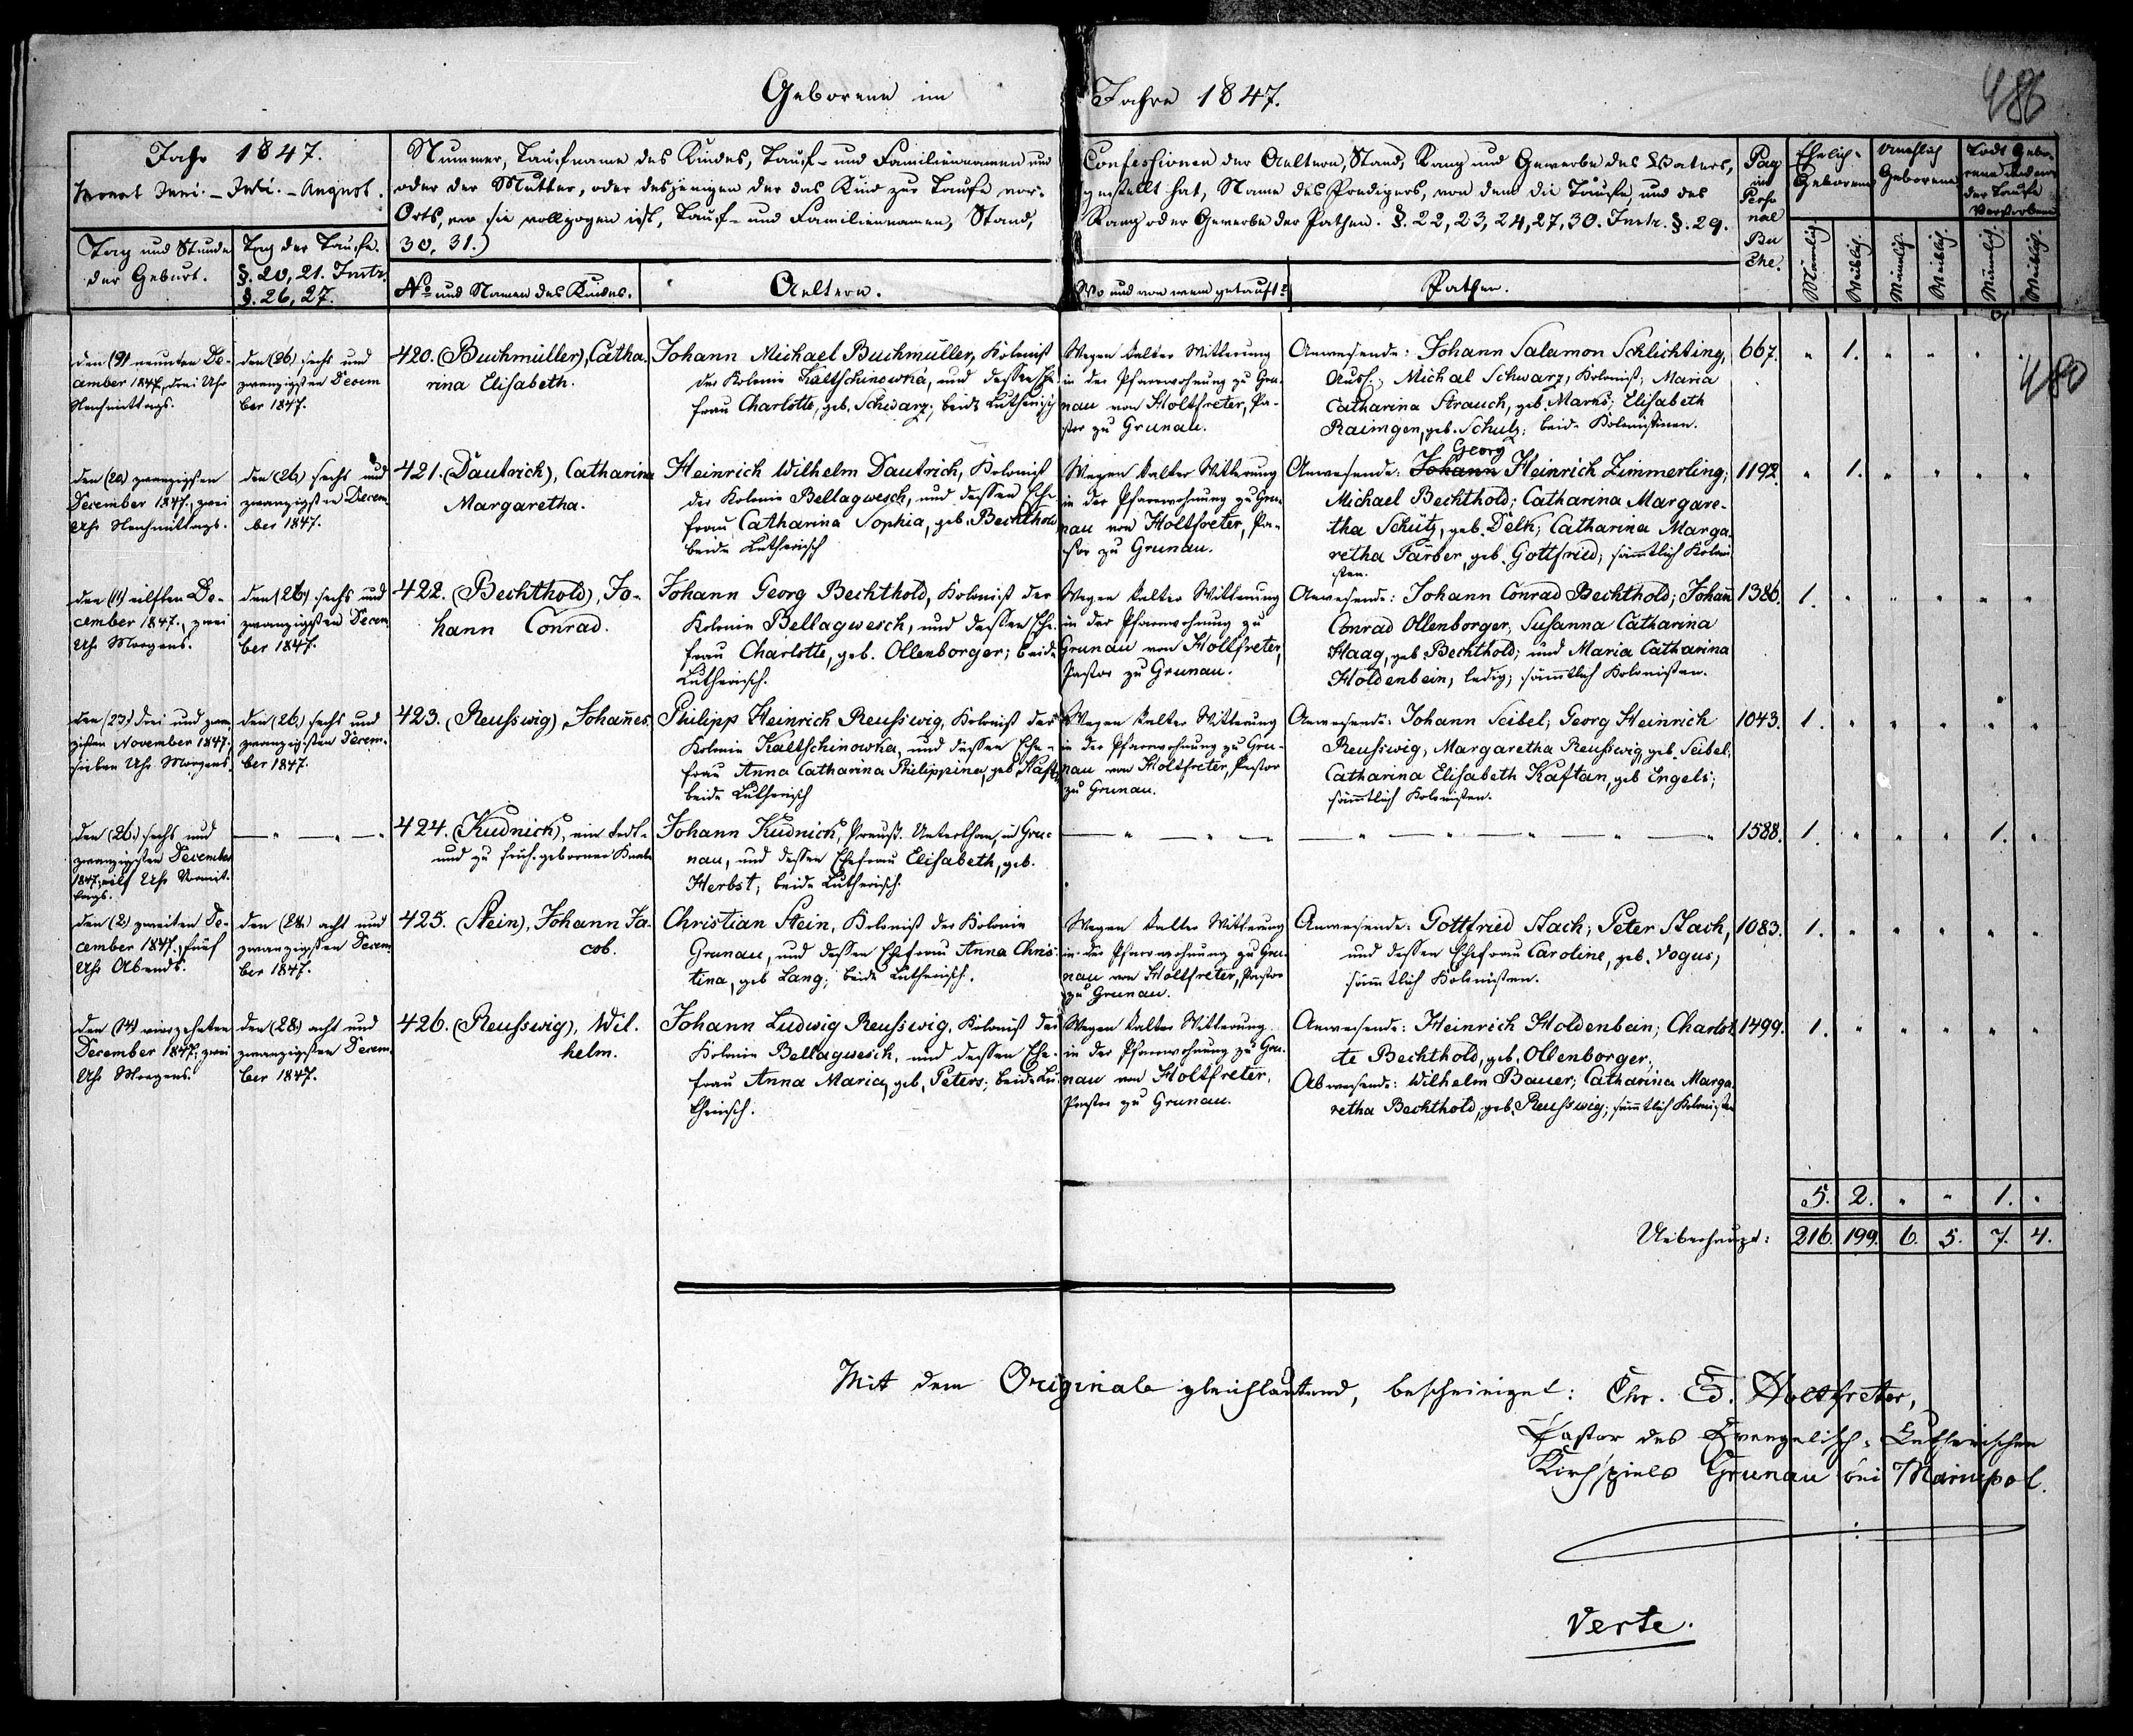 Geborene im Jahre 1847.
486
Jahr 1847.
Monat Juni. - Juli. - August.
Tag und Stunde
der Geburt.
Tag der Taufe.
§. 20, 21. Instr.
§. 26, 27.
Nummer, Taufname des Kindes, Tauf- und Familiennamen und
oder der Mutter, oder desjenigen der das Kind zur Taufe vor-
Orts, wo sie vollzogen ist, Tauf- und Familiennamen, Stand,
30, 31.)
No und Namen des Kindes.
Aeltern.
Confessionen der Aeltern, Stand, Rang und Gewerbe des Vaters,
gestellt hat, Name des Predigers, von dem die Taufe, und des
Rang oder Gewerbe der Pathen. §. 22, 23, 24, 27, 30. Instr. §. 29.
Wo und von wem getauft?
Pathen.
Pag
im
Perso
nal
Bu
che.
Ehelich-
Geborene
Unehelich
Geborene
Todt Gebo-
rene und vor
der Taufe
Verstorbene
Männlich.
Weiblich.
Männlich.
Weiblich.
Männlich.
Weiblich.
den (9) neunten De-
cember 1847, drei Uhr
Nachmittags.
den (26) sechs und
zwanzigsten Decem
ber 1847.
420. (Buchmüller), Catha-
rina Elisabeth.
Johann Michael Buchmüller, Kolonist
der Kolonie Kaltschinowka, und dessen Ehe-
frau Charlotte, geb. Schwarz; beide Lutherisch
Wegen kalter Witterung
in der Pfarrwohnung zu Gru-
nau von Holtfreter, Pa-
stor zu Grunau.
Anwesende: Johann Salamon Schlichting,
Michal Schwarz, Kolonist; Maria
Catharina Strauch, geb. Marks; Elisabeth
Raimgen, geb. Schulz; beide Kolonistinen.
667. " 1. " " " "
480
den (20) zwanzigsten
December 1847., zwei
Uhr Nachmittags.
den (26) sechs und
zwanzigsten Decem-
ber 1847.
421. (Dautrich), Catharina
Margaretha.
Heinrich Wilhelm Dautrich, Kolonist
der Kolonie Bellagwesch, und dessen Ehe-
frau Catharina Sophia, geb. Bechthold
beide Lutherisch
Wegen kalter Witterung
in der Pfarrwohnung zu Gru-
nau von Holtfreter, Pa-
stor zu Grunau.
Georg
Anwesende: Johann Heinrich Zimmerling;
Michael Bechthold; Catharina Margare-
tha Schütz, geb. Delk; Catharina Marga-
retha Färber, geb. Gottfried; sämtlich Koloni-
sten.
1192. " 1. " " " "
den (11) eilften De-
cember 1847., zwei
Uhr Morgens.
den (26) sechs und
zwanzigsten Decem
ber 1847.
422. (Bechthold), Jo-
hann Conrad.
Johann Georg Bechthold, Kolonist der
Kolonie Bellagwesch, und dessen Ehe-
frau Charlotte, geb. Ollenborger; beide
Lutherisch.
Wegen kalter Witterung
in der Pfarrwohnung zu
Grunau von Holtfreter,
Pastor zu Grunau.
Anwesende: Johann Conrad Bechthold; Johann
Conrad Ollenborger, Susanna Catharina
Haag, geb. Bechthold; und Maria Catharina
Holdenbein, ledig; sämmtlich Kolonisten.
1386. 1. " " " " "
den (23.) drei und zwan
zigsten November 1847,
sieben Uhr Morgens.
den (26.) sechs und
zwanzigsten Decem-
ber 1847.
423. (Reusswig) Johannes.
Philipp Heinrich Reusswig, Kolonist der
Kolonie Kaltschinowka, und dessen Ehe-
frau Anna Catharina Philippina, geb. Kaft
beide Lutherisch
Wegen kalter Witterung
in der Pfarrwohnung zu Gru-
nau von Holtfreter, Pastor
zu Grunau.
Anwesende: Johann Seibel; Georg Heinrich
Reusswig, Margaretha Reusswig, geb. Seibel;
Catharina Elisabeth Kaftan, geb Engels;
sämmtlich Kolonisten.
1043. 1. " " " " "
den (26.) sechs und
zwanzigsten December
1847, eilf Uhr Vormit-
tags.
— " — " — "
424. (Kudnick), ein todt-
und zu früh geborner Knabe
Johann Kudnick, Preuß. Unterthan, in Gru-
nau, und dessen Ehefrau Elisabeth, geb.
Herbst, beide Lutherisch.
— " — " —
— " — " — " — " — "
1588. 1. " " " 1. "
den (2) zweiten De-
cember 1847., fünf
Uhr Abends.
den (28) acht und
zwanzigsten Decem
ber 1847.
425. (Stein), Johann Ja-
cob.
Christian Stein, Kolonist der Kolonie
Grunau, und dessen Ehefrau Anna Chris-
tina, geb Lang; beide Lutherisch.
Wegen kalter Witterung
in der Pfarrwohnung zu Gru-
nau von Holtfreter, Pastor
zu Grunau.
Anwesende: Gottfried Stach; Peter Stach,
und dessen Ehefrau Caroline, geb. Vogus;
sämmtlich Kolonisten.
1083. 1. " " " " "
den (14) vierzehnten
December 1847, zwei
Uhr Morgens.
den (28) acht und
zwanzigsten Decem-
ber 1847.
426. (Reusswig), Wil-
helm.
Johann Ludwig Reusswig, Kolonist der
Kolonie Bellagwesch, und dessen Ehe-
frau Anna Maria, geb. Peters; beide Lu-
therisch.
Wegen kalter Witterung
in der Pfarrwohnung zu Gru-
nau von Holtfreter,
Pastor zu Grunau.
Anwesende: Heinrich Holdenbein; Charlot-
te Bechthold, geb. Ollenborger;
Abwesende: Wilhelm Bauer; Catharina Marga-
retha Bechthold, geb. Reusswig; sämmtlich Kolonisten
1499. 1. " " " " "
5. 2. " " 1. "
Ueberhaupt: 216. 199. 6. 5. 7. 4.
Mit dem Originale gleichlautend, bescheiniget: Chr. Ed. Holtfreter,
Pastor des Evangelisch-Lutherischen
Kirchspiels Grunau bei Mariupol.
Verte.